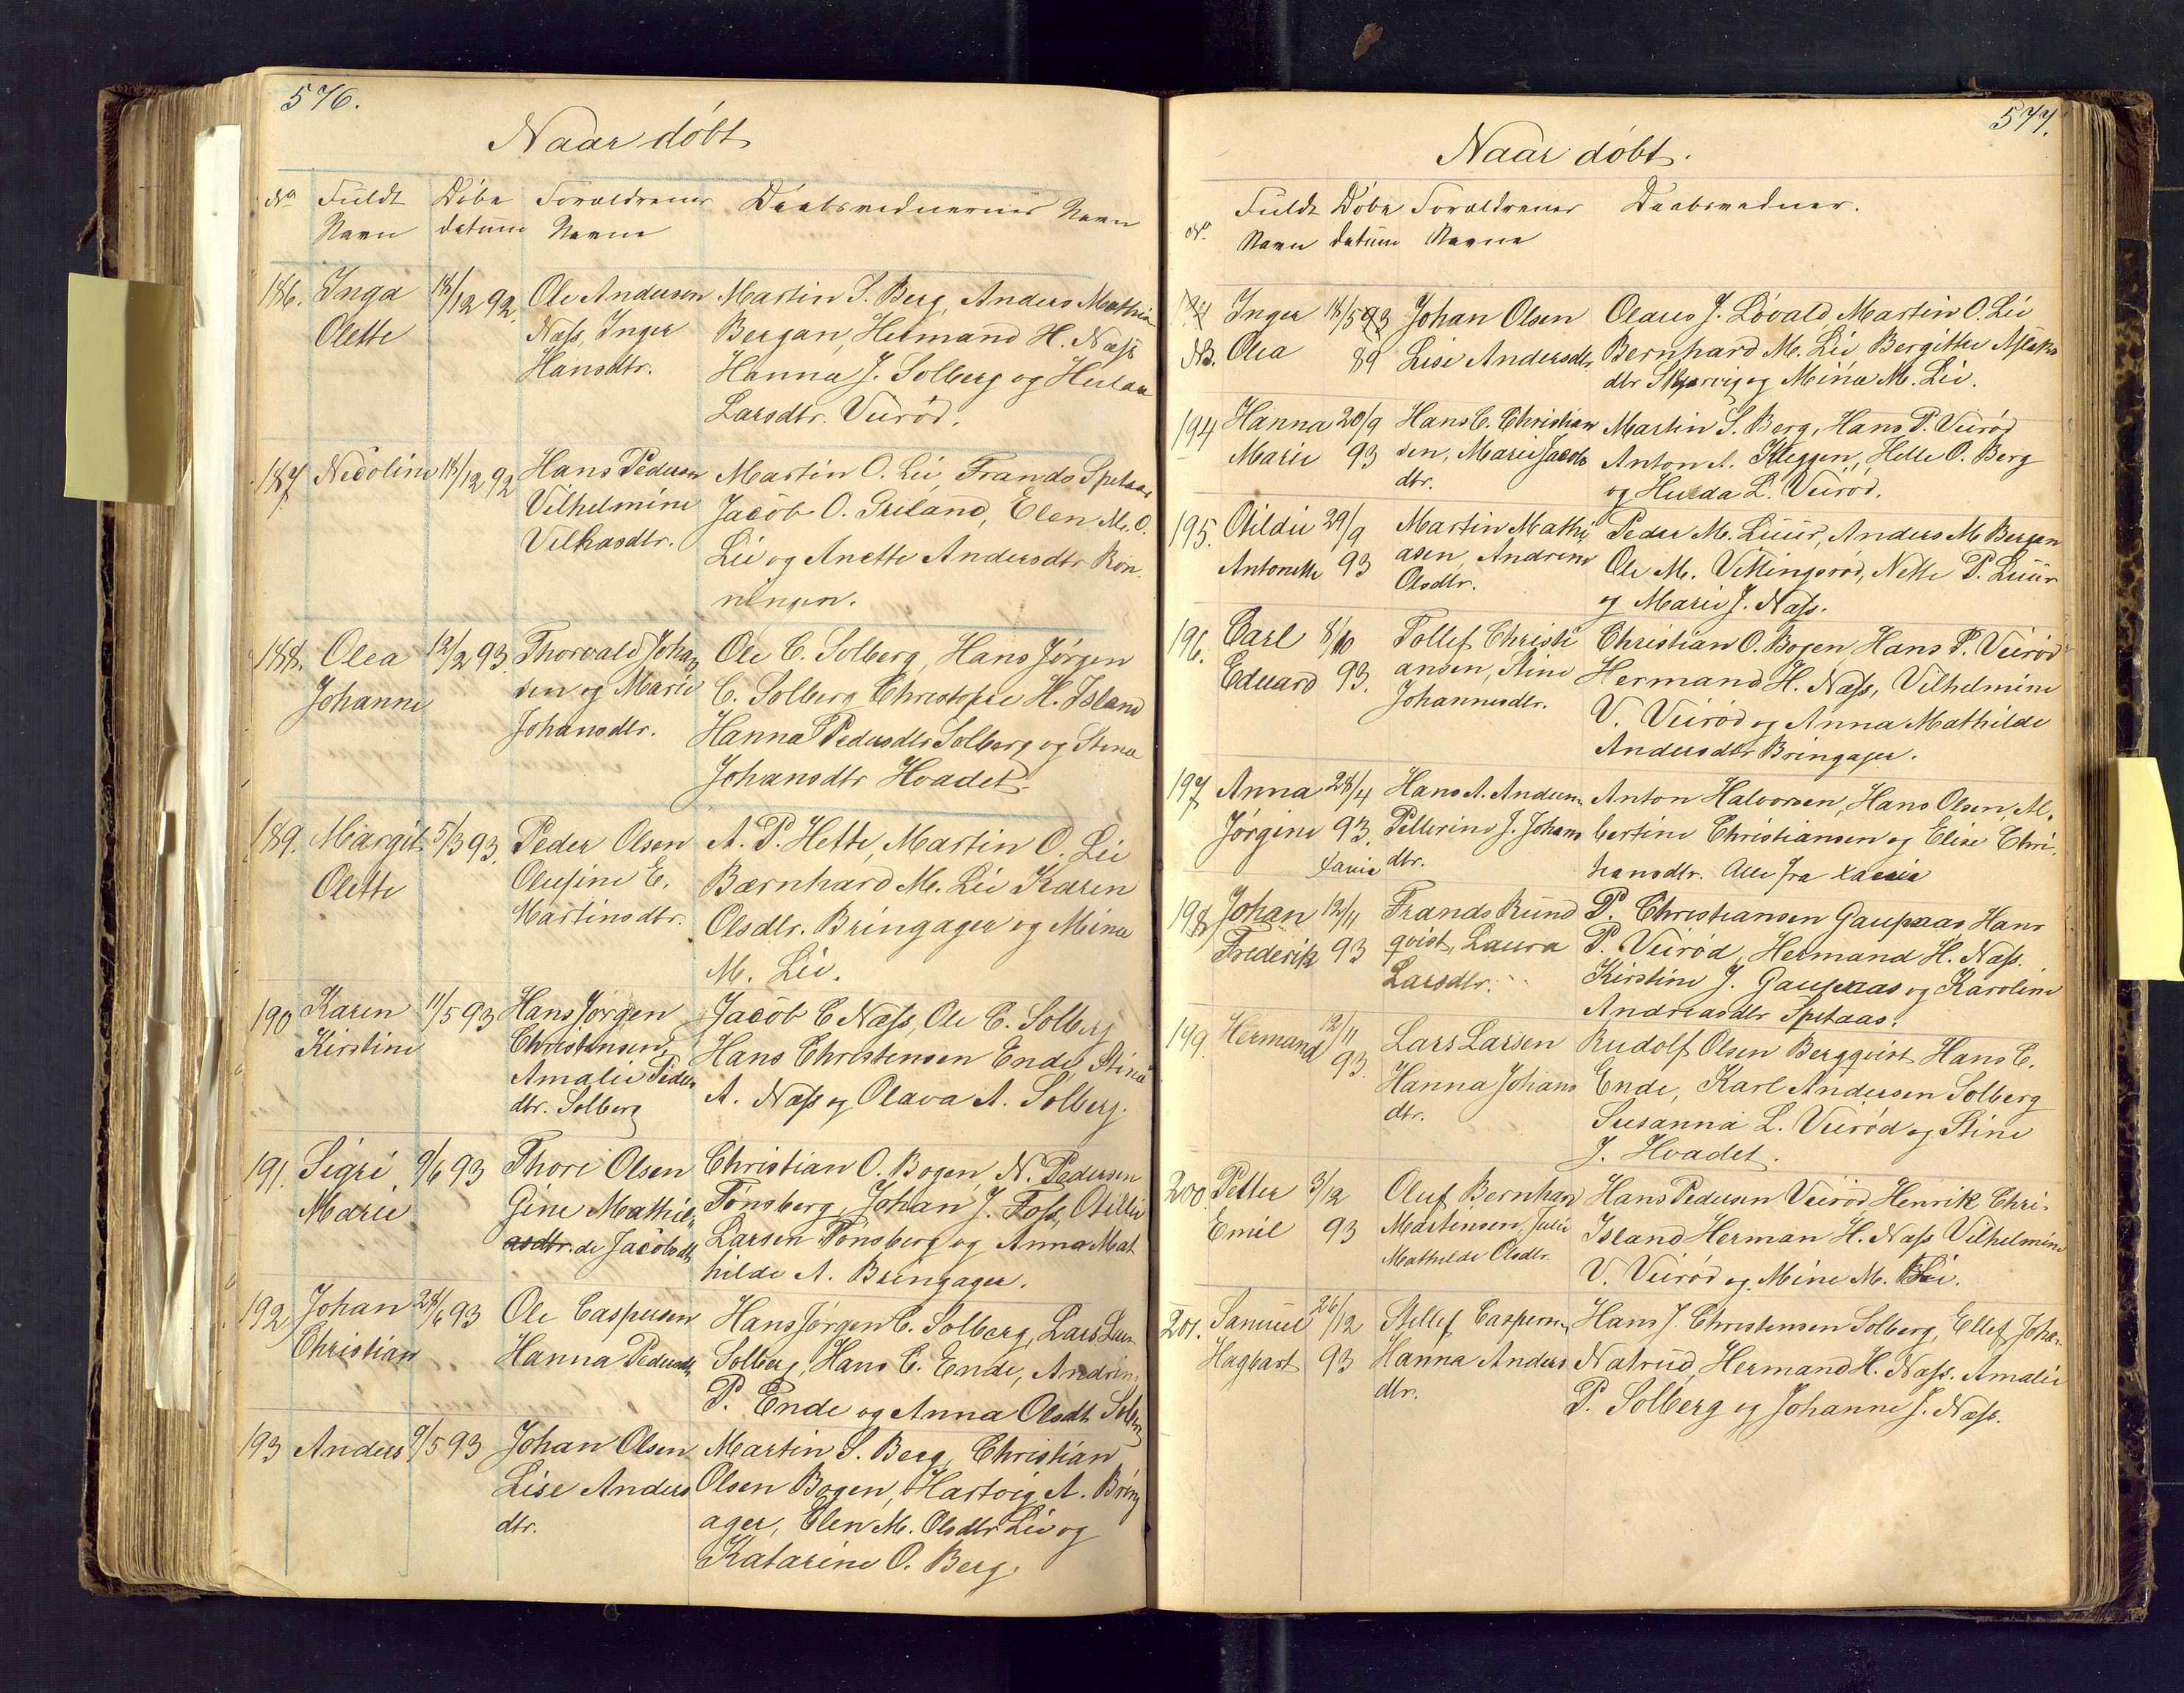 576.
Naar döbt
No Fuldt Döbe Foraldrenes Daabsvednernes Navn
Navn datum Navne
186. Inga 18/12 92. Ole Andersen Martin S. Berg, Anders Mathia
Olette Næss, Inger Bergan, Hermand H. Næss
Hansdtr. Hanna J. Solberg og
Larsdtr. Veiröd.
187 Nicoline 18/12 92 Hans Pedersen Martin O. Lie, Frands Spetaas
Vilhelmine Jacob O. Griland, Elen M. O.
Lie og Anette Andersdtr Rön-
ningen.
188. Olea 12/2 93. Thorvald Johan Ole C. Solberg, Hans Jörgen
Johanne sen og Marie C. Solberg H. Island
Johansdtr. Hanna Pedersdtr Solberg og Stina
Johansdtr Hvadet.
189. Margit 5/3 93. Peder Olsen A. P. Hette, Martin O. Lie
Olette E. Bærnhard M. Lie Karen
Martinsdtr. Olsdtr. Bringager og Mina
M. Lie.
190 Karen 11/5 93 Hans Jörgen Jacob C Næss, Ole C. Solberg
Kirstine Christensen, Hans Christensen Ende, Stina
Amalie Peders A. Næss og Olava A. Solberg.
dtr. Solberg
191. Sigri 9/6 93 Thore Olsen Christian O. Bogen, N. Pedersen
Marie Gine Mathil- Tönsberg, Johan J. Foss, Otillie
asdtr. de Jacobsdtr Larsen Tönsberg og Anna Mat
hilde A. Bringager.
192 Johan 24/6 93 Ole Caspersen Hans Jörgen C. Solberg, Lars Lars
Christian Hanna Pedersdtr Solberg, Hans C. Ende, Andrine
P. Ende og Anna Olsdtr Solberg
193 Anders 9/5 93 Johan Olsen Martin S. Berg, Christian
Lise Anders Olsen Bogen, Hartvig A. Bring
dtr. ager, Elen M. Olsdtr Lie og
Katarine O. Berg.
577.
Naar döbt.
No Fuldt Döbe Foraldrenes Daabsvedner.
Navn datum Navne
Inger 18/5 93 Johan Olsen Olaus J. Lövald, Martin O. Lie
NB. Olea 89 Lise Andersdtr Bernhard M. Lie, Bergitte Aslaks
dtr og Mina M. Lie.
194 Hanna 20/9 Hans C. Christian Martin S. Berg, Hans P. Veiröd
Marie 93 sen, Marie Jacobs Anton A. Kleggen, Helle O. Berg
dtr. og Hulda L. Veiröd.
195. 29/9 Martin Mathi Peder M. Luur, Anders M Bergan
Antonette 93 asen, Andrine Ole M. Vittingsröd, Nette P. Luur
Olsdtr. og Marie J. Næss.
196. Carl 8/10 Tollef Christi Christian O. Bogen, Hans P. Veiröd
Eduard 93. ansen, Hermand H. Næss, Vilhelmine
Johannesdtr. V. Veiröd og Anna Mathilde
Andersdtr Bringager.
197 Anna 28/4 Hans A. Andersen Anton Halvorsen, Hans Olsen, Al-
Jörgine 93. Pellerine J. Johans bertine Christiansen og Elise Chri-
dtr. tiansdtr. Alle fra
198 Johan 12/11 Frands Rund P. Christiansen Gaupaas Hans
Frederik 93 qvist, Laura P. Veiröd, Hermand H. Næss.
Larsdtr. Kirstine J. Gaupaas og Karoline
Andreasdtr Spetaas.
199. Hermand 12/11 Lars Larsen Rudolf Olsen Bergqvist Hans C.
93. Hanna Johans Ende, Karl Andersen Solberg
dtr. Susanna L. Veiröd og Stine
J. Hvadet.
200. Petter 3/12 Oluf Bernhard Hans Pedersen Veiröd, Henrik Chri-
Emil 93 Martinsen, Julie Island Herman H. Næss Vilhelmine
Mathilde Olsdtr. V. Veiröd og Mine M. Lie.
201. Samuel 26/12 Caspersen Hans J. Christensen Solberg, Ellef Johan-
Hagbart 93 Hanna Anders Natrud, Hermand H. Næss. Amalie
dtr. P. Solberg og Johanne J. Næss.